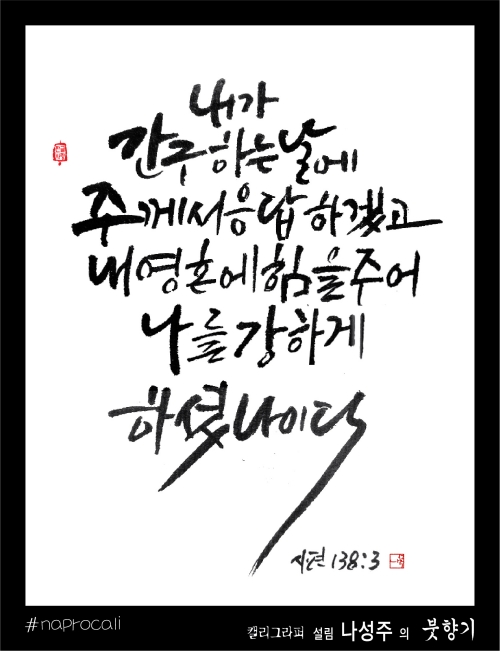 내가
간구하는 날에
주께서 응답하겠고
내 영혼에 힘을 주어
나를 강하게
하셨나이다
시편 138:3
#naprocali
캘리그라퍼 설림 나성주 의 붓향기